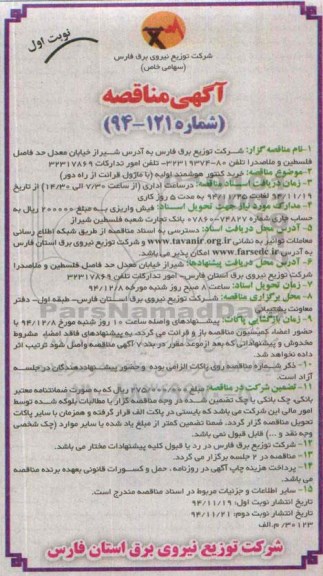 نوبت اول
شرکت توزیع نیروی برق فارس
(سهامی خاص)
آگهی مناقصه
(شماره ۱۲۱-۹۴)
۱-نام مناقصه گزار: شرکت توزیع برق فارس به آدرس شیراز خیابان معدل حد فاصل
فلسطین و ملاصدرا تلفن ۸۰-۳۲۳۱۹۳۷۴-تلفن امور تدارکات ۳۲۳۱۷۸۶۹
۲-موضوع مناقصه: خرید کنتور هوشمند اولیه (با ماژول قرائت از راه دور)
۳-زمان دریافت اسناد مناقصه: درساعت اداری (از ساعت ۷/۳۰ الی ۱۴/۳۰) از تاریخ
۹۴/۱۱/۱۹ لغایت ۹۴/۱۱/۲۵ به مدت ۵ روز کاری
۴-مدارک مورد نیاز جهت تحویل اسناد: فیش واریزی به مبلغ ۲۰۰۰۰۰ ریال به
حساب جاری شماره ۰۷۸۶۰۰۷۴۸۲۷ بانک تجارت شعبه فلسطین شیراز
۵-آدرس محل دریافت اسناد: دسترسی به اسناد مناقصه از طریق شبکه اطلاع رسانی
معاملات توانیر به نشانی www.tavanir.org.ir و شرکت توزیع نیروی برق استان فارس
به آدرس www.farsedc.ir امکان پذیر می باشد.
۶-آدرس محل دریافت پیشنهادها: شیراز خیابان معدل حد فاصل فلسطین و ملاصدرا
شرکت توزیع نیروی برق استان فارس- امور تدارکات تلفن ۳۲۳۱۷۸۶۹
۷-زمان تحویل اسناد: ساعت ۸ صبح روز شنبه مورخه ۹۴/۱۲/۸
۸-محل برگزاری مناقصه: شرکت توزیع نیروی برق استان فارس- طبقه اول- دفتر
معاونت پشتیبانی
۹-زمان بازگشایی پاکات: پیشنهادهای واصله ساعت ۱۰ روز شنبه مورخ ۹۴/۱۲/۸ با
حضور اعضاء کمیسیون مناقصه باز و قرائت می گردد، به پیشنهادهای فاقد امضاء، مشروط
مخدوش و پیشنهاداتی که بعد از موعد مقرر در بند ۷ آگهی مناقصه واصل شود ترتیب اثر
داده نخواهد شد.
۱۰- ذکر شماره مناقصه روی پاکات الزامی بوده و حضور پیشنهاددهندگان در جلسه
آزاد است.
۱۱- تضمین شرکت در مناقصه: مبلغ ۲۷۵۰۰۰۰۰۰ ریال که به صورت ضمانتنامه معتبر
بانکی، چک بانکی یا چک تضمین شده در وجه مناقصه گزار یا مطالبات بلوکه شده توسط
امور مالی این شرکت می باشد که بایستی در پاکت الف قرار گرفته و همزمان با سایر پاکات
تحویل مناقصه گزار گردد. ضمنا تضمین کمتر از مبلغ یاد شده یا سایر موارد (چک شخصی
وجه نقد و ...) قابل قبول نمی باشد.
۱۲- شرکت توزیع برق فارس در رد یا قبول کلیه پیشنهادات مختار می باشد.
۱۳- مناقصه در ۲ جلسه برگزار می گردد.
۱۴- پرداخت هزینه چاپ آگهی در روزنامه، حمل و کسورات قانونی بعهده برنده مناقصه
می باشد.
۱۵- سایر اطلاعات و جزئیات مربوط در اسناد مناقصه مندرج است.
تاریخ انتشار نوبت اول: ۹۴/۱۱/۱۹
تاریخ انتشار نوبت دوم: ۹۴/۱۱/۲۱
۳۰۱۲۳/م.الف
شرکت توزیع نیروی برق استان فارس